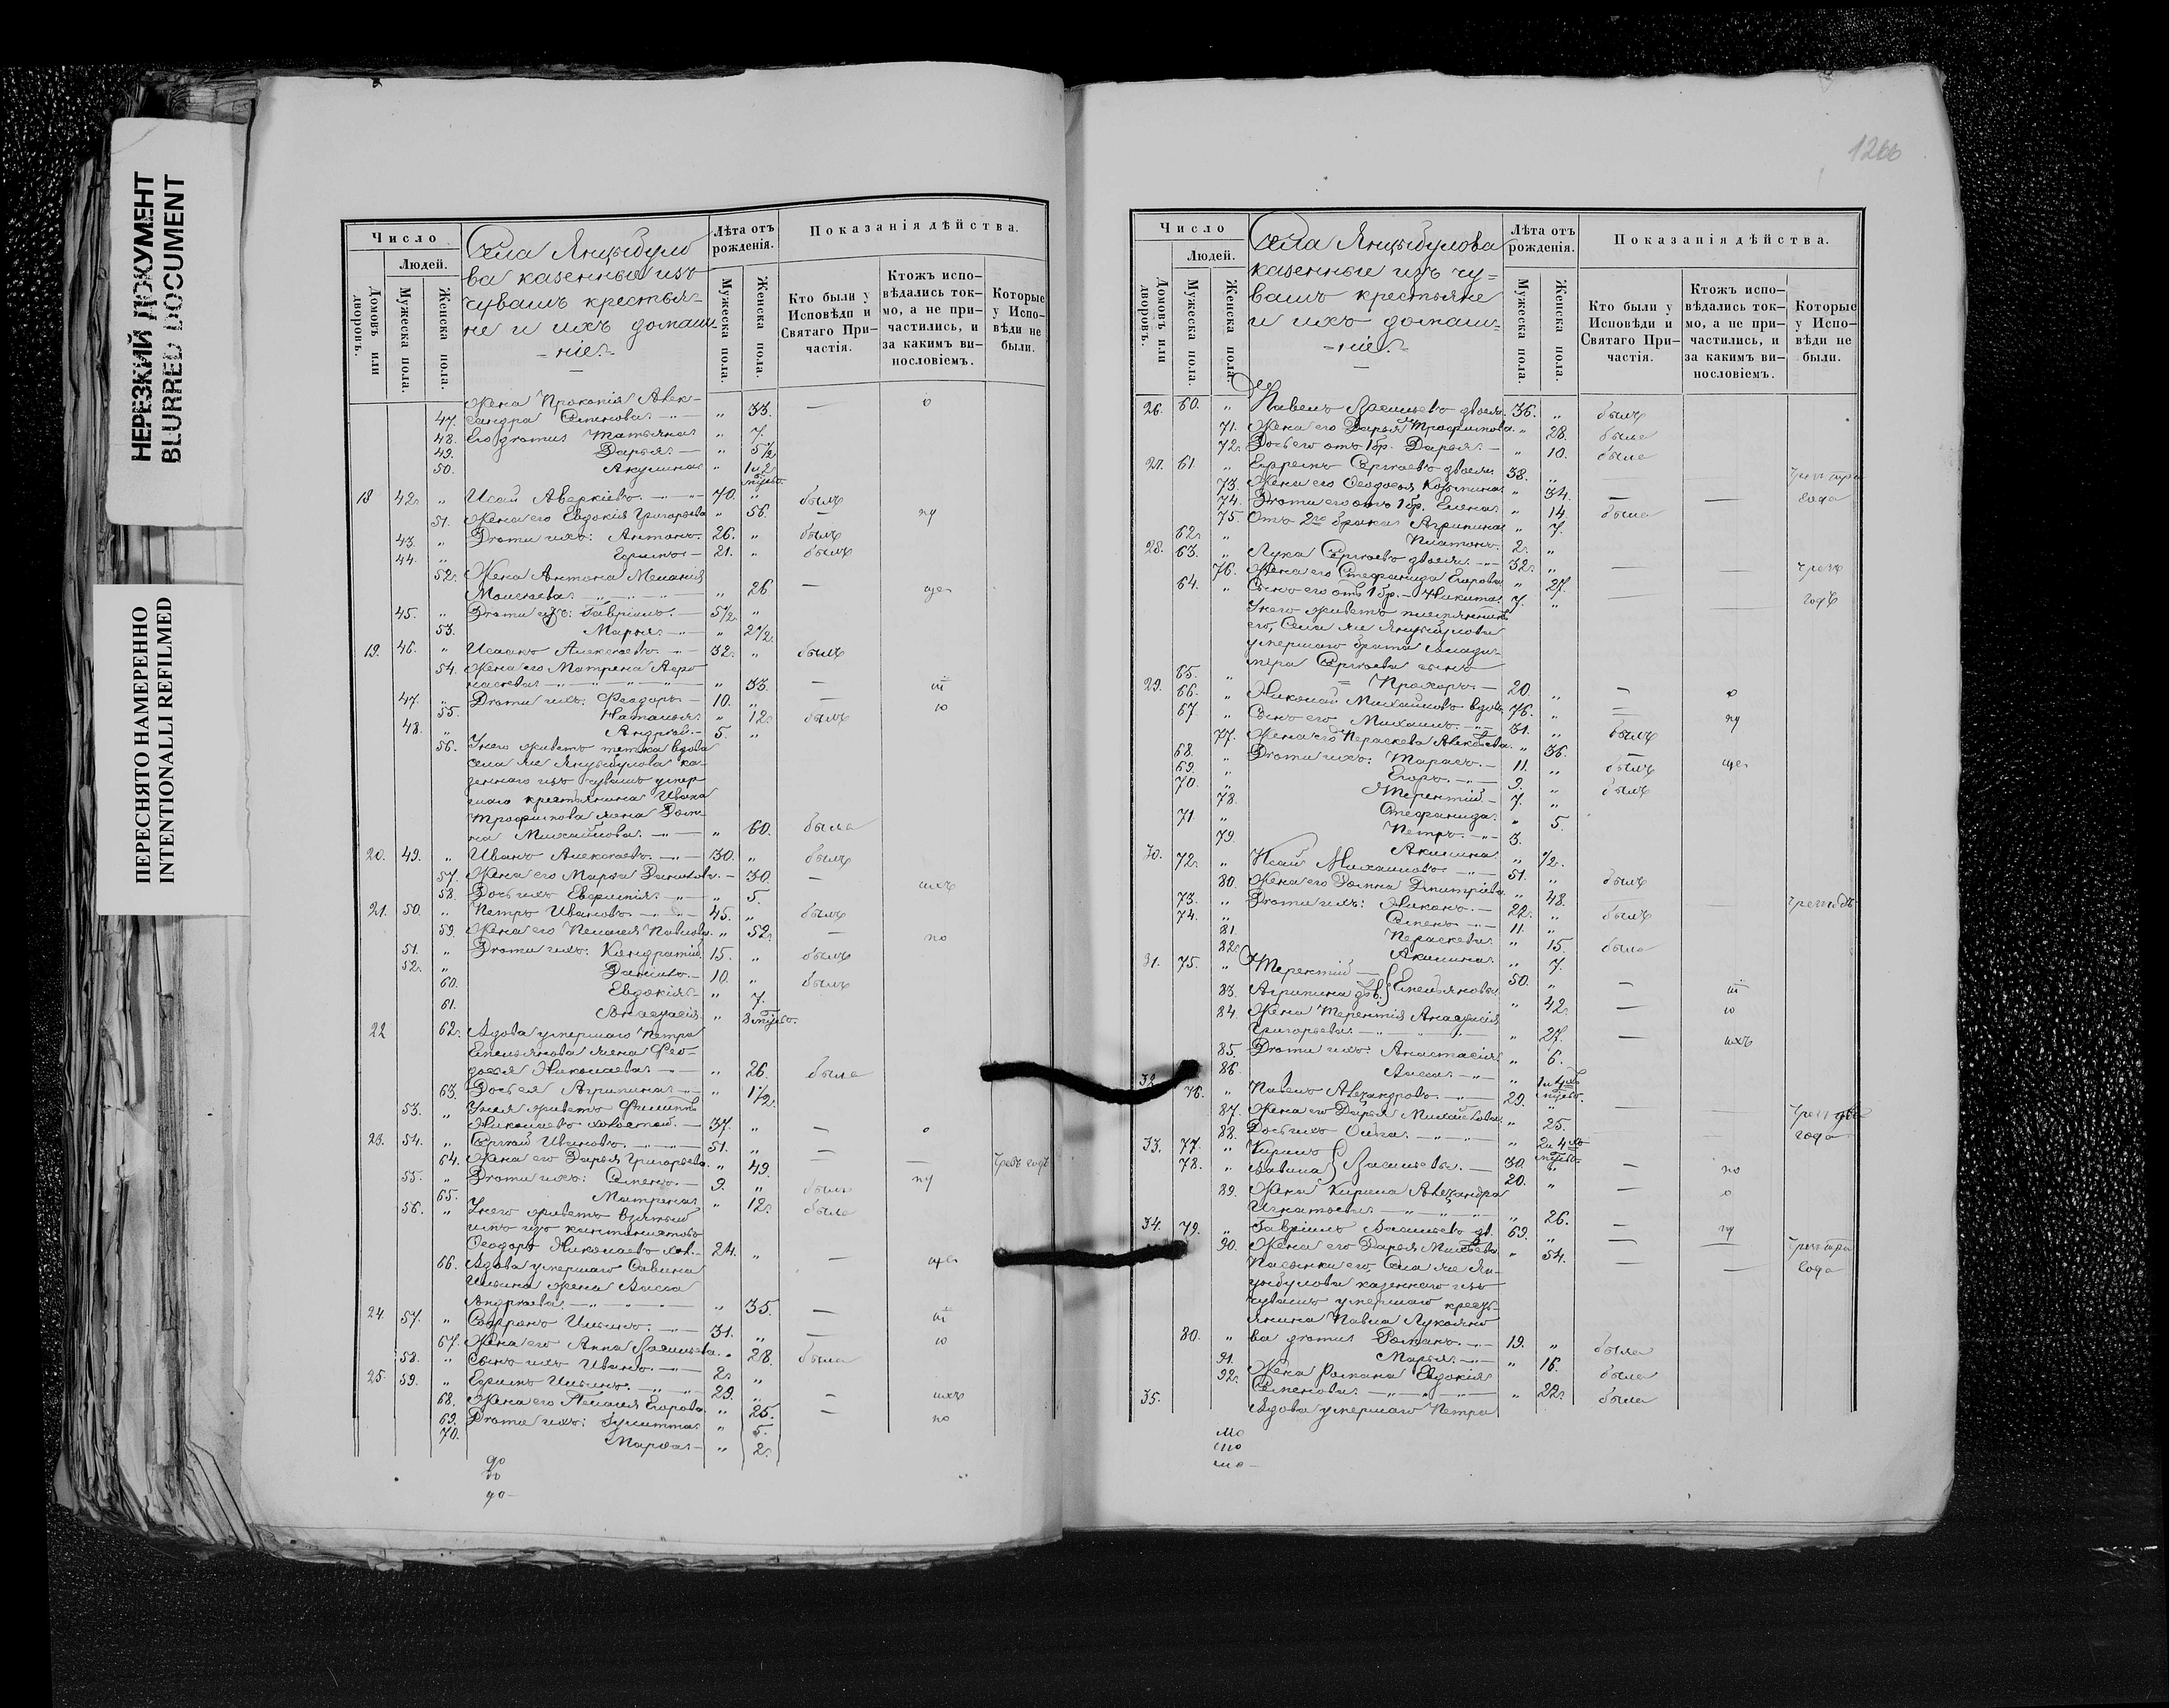 НЕРЕЗКИЙ ДОКУМЕНТ
BLURRED DOCUMENT
ПЕРЕСНЯТО НАМЕРЕННО
INTENTIONALLI REFILMED
Число
Людей.
Домовъ или дворовъ.
Мужеска пола.
Женска пола.
Села Янцыбуло
ва казенные изъ
чувашъ крестья-
не и ихъ домаш-
ніе.
Лѣта отъ рожденія.
Мужеска пола.
Женска пола.
Показанія дѣйства.
Кто были у Исповѣди и Святаго При-частія.
Ктожъ испо-вѣдались ток-мо, а не при-частились, и за какимъ ви-нословіемъ.
Которые у Испо-вѣди не были.
Жена Прокопія Алек-
47. сандра Семенова " 33. — ю
48. Его дѣти Татьяна " 7.
49. Дарья " 5 1/2
50. Акулина " 1 и 2 мѣсяц.
18 42. " Исай Аверкіевъ 70. " былъ
51. Жена его Евдокія Григорьева " 56. — пу
43. " Дѣти ихъ: Антонъ 26. " былъ
44. " Ефимъ 21. " былъ
52. Жена Антона Меланія
Моисеева " 26 — щен
45. " Дѣти ихъ: Гавріилъ 5 1/2 "
53. Марья " 2 1/2
19. 46. " Исаакъ Алексѣевъ 32. " былъ
54. Жена его Матрена Аѳо
насьева " 33. — ш
47. " Дѣти ихъ: Ѳеодоръ 10. " — ю
55. Наталья " 12. былъ
48. " Андрей 5. "
56. У него живетъ тетка вдова
села же Янцыбулова ка-
зеннаго изъ чувашъ умер-
шаго крестьянина Ивана
Трофимова жена Дом-
на Михайлова " 60. была
20. 49. " Иванъ Алексѣевъ 30. " былъ
57. Жена его Марья Данилова 30. — ихъ
58. Дочь ихъ Евфимія " 5.
21. 50. " Петръ Ивановъ 45. " былъ
59. Жена его Пелагея Павлова " 52. — по
51. " Дѣти ихъ: Кондратій 15. " былъ
52. " Данило 10. " былъ
60. Евдокія " 7.
61. Анастасія " 8 мѣсяц.
22 62. Вдова умершаго Петра
Емельянова жена Ѳео-
досья Николаева " 26. была
63. Дочь ея Агрипина " 1 1/2
53. " У нея живетъ Филиппъ
Николаевъ холостой 37. " — о
23. 54. " Сергѣй Ивановъ 51. " —
64. Жена его Дарья Григорьева " 49. — — Чрезъ годъ
55. " Дѣти ихъ: Семенъ 9. " былъ пу
65. Матрена " 12. была
56. " У него живетъ взятый
изъ кантонистовъ
Ѳеодоръ Николаевъ хол. 24. " — щен
66. Вдова умершаго Савина
Ильина жена Васса
Андреева " 35. — ш
24 57. " Софронъ Ильинъ 31. " — ю
67. Жена его Анна Васильева " 28. была
58. " Сынъ ихъ Иванъ 2. "
25 59. " Ефимъ Ильинъ 29. " — ихъ
68. Жена его Пелагея Егорова " 25. — по
69. Дѣти ихъ: Іулитта " 5.
70. Марѳа " 2.
до
во
до
1266
Число
Людей.
Домовъ или дворовъ.
Мужеска пола.
Женска пола.
Села Янцыбулова
казенные изъ чу-
вашъ крестьяне
и ихъ домаш-
ніе.
Лѣта отъ рожденія.
Мужеска пола.
Женска пола.
Показанія дѣйства.
Кто были у Исповѣди и Святаго При-частія.
Ктожъ испо-вѣдались ток-мо, а не при-частились, и за какимъ ви-нословіемъ.
Которые у Испо-вѣди не были.
26. 60. " Павелъ Васильевъ двоеж. 36. " былъ
71. Жена его Дарья Трофимова " 28. была
72. Дочь его отъ 1 бр. Дарья " 10. была
27. 61. " Ефремъ Сергѣевъ двоеж. 38. " — Чрезъ три
73. Жена его Ѳеодосья Козьмина " 34. — — года
74. Дѣти его отъ 1 бр. Елена " 14. была
75. Отъ 2го брака Агрипина " 7.
62. " Платонъ 2. "
28. 63. " Лука Сергѣевъ двоеж. 32. " — — чрезъ
76. Жена его Стефанида Егорова " 27. — — годъ
64. " Сынъ его отъ 1 бр. Никита 7. "
У него живетъ племянникъ
его, Села же Янцыбулова
умершаго брата Влади-
мера Сергѣева сынъ
65. " Прохоръ 20. " — ю
29. 66. " Николай Михайловъ вдовъ 76. " — пу
67 " Сынъ его Михаилъ 31. " былъ
77. Жена его Параскева Алексѣева " 36. — щен
68. " Дѣти ихъ: Тарасъ 11. " былъ
69. " Егоръ 9. " былъ
70. " Терентій 7. "
78. Стефанида " 5.
71 " Петръ 3.
79. Акилина " 1/2.
30. 72. " Исай Михайловъ 51. " былъ
80. Жена его Домна Дмитріева " 48. — — чрезъ годъ
73. " Дѣти ихъ: Никонъ 22. " былъ
74. " Семенъ 11. "
81. Параскева " 15 была
82. Акилина " 7.
31. 75. " Терентій 50. " — ш
83. Агрипина дѣв. } Емельяновы " 42. — ю
84. Жена Терентія Анастасія
Григорьева " 27. — ихъ
85. Дѣти ихъ: Анастасія " 6.
86 Васса " 1 и 4 мѣсяц.
32 76. " Павелъ Александровъ 29. " — Чрезъ два
87. Жена его Дарья Михайлова " 25. — года
88. Дочь ихъ Ольга " 2 и 4 мѣсяц.
33. 77. " Кирилъ
78. " Вавила } Васильевы 30. " — по
20. " — о
89. Жена Кирила Александра
Игнатьева " 26.
34. 79. " Гавріилъ Васильевъ дв. 69. " — пу
90. Жена его Дарья Михѣева " 54. — — Чрезъ три
Пасынки его Села же Ян- года
цыбулова казеннаго изъ
чувашъ умершаго кресть-
янина Павла Лукьяно
80. " ва дѣти Романъ 19. " былъ
91. Марья " 16. была
92. Жена Романа Евдокія
Семенова " 22. была
35. Вдова умершаго Петра